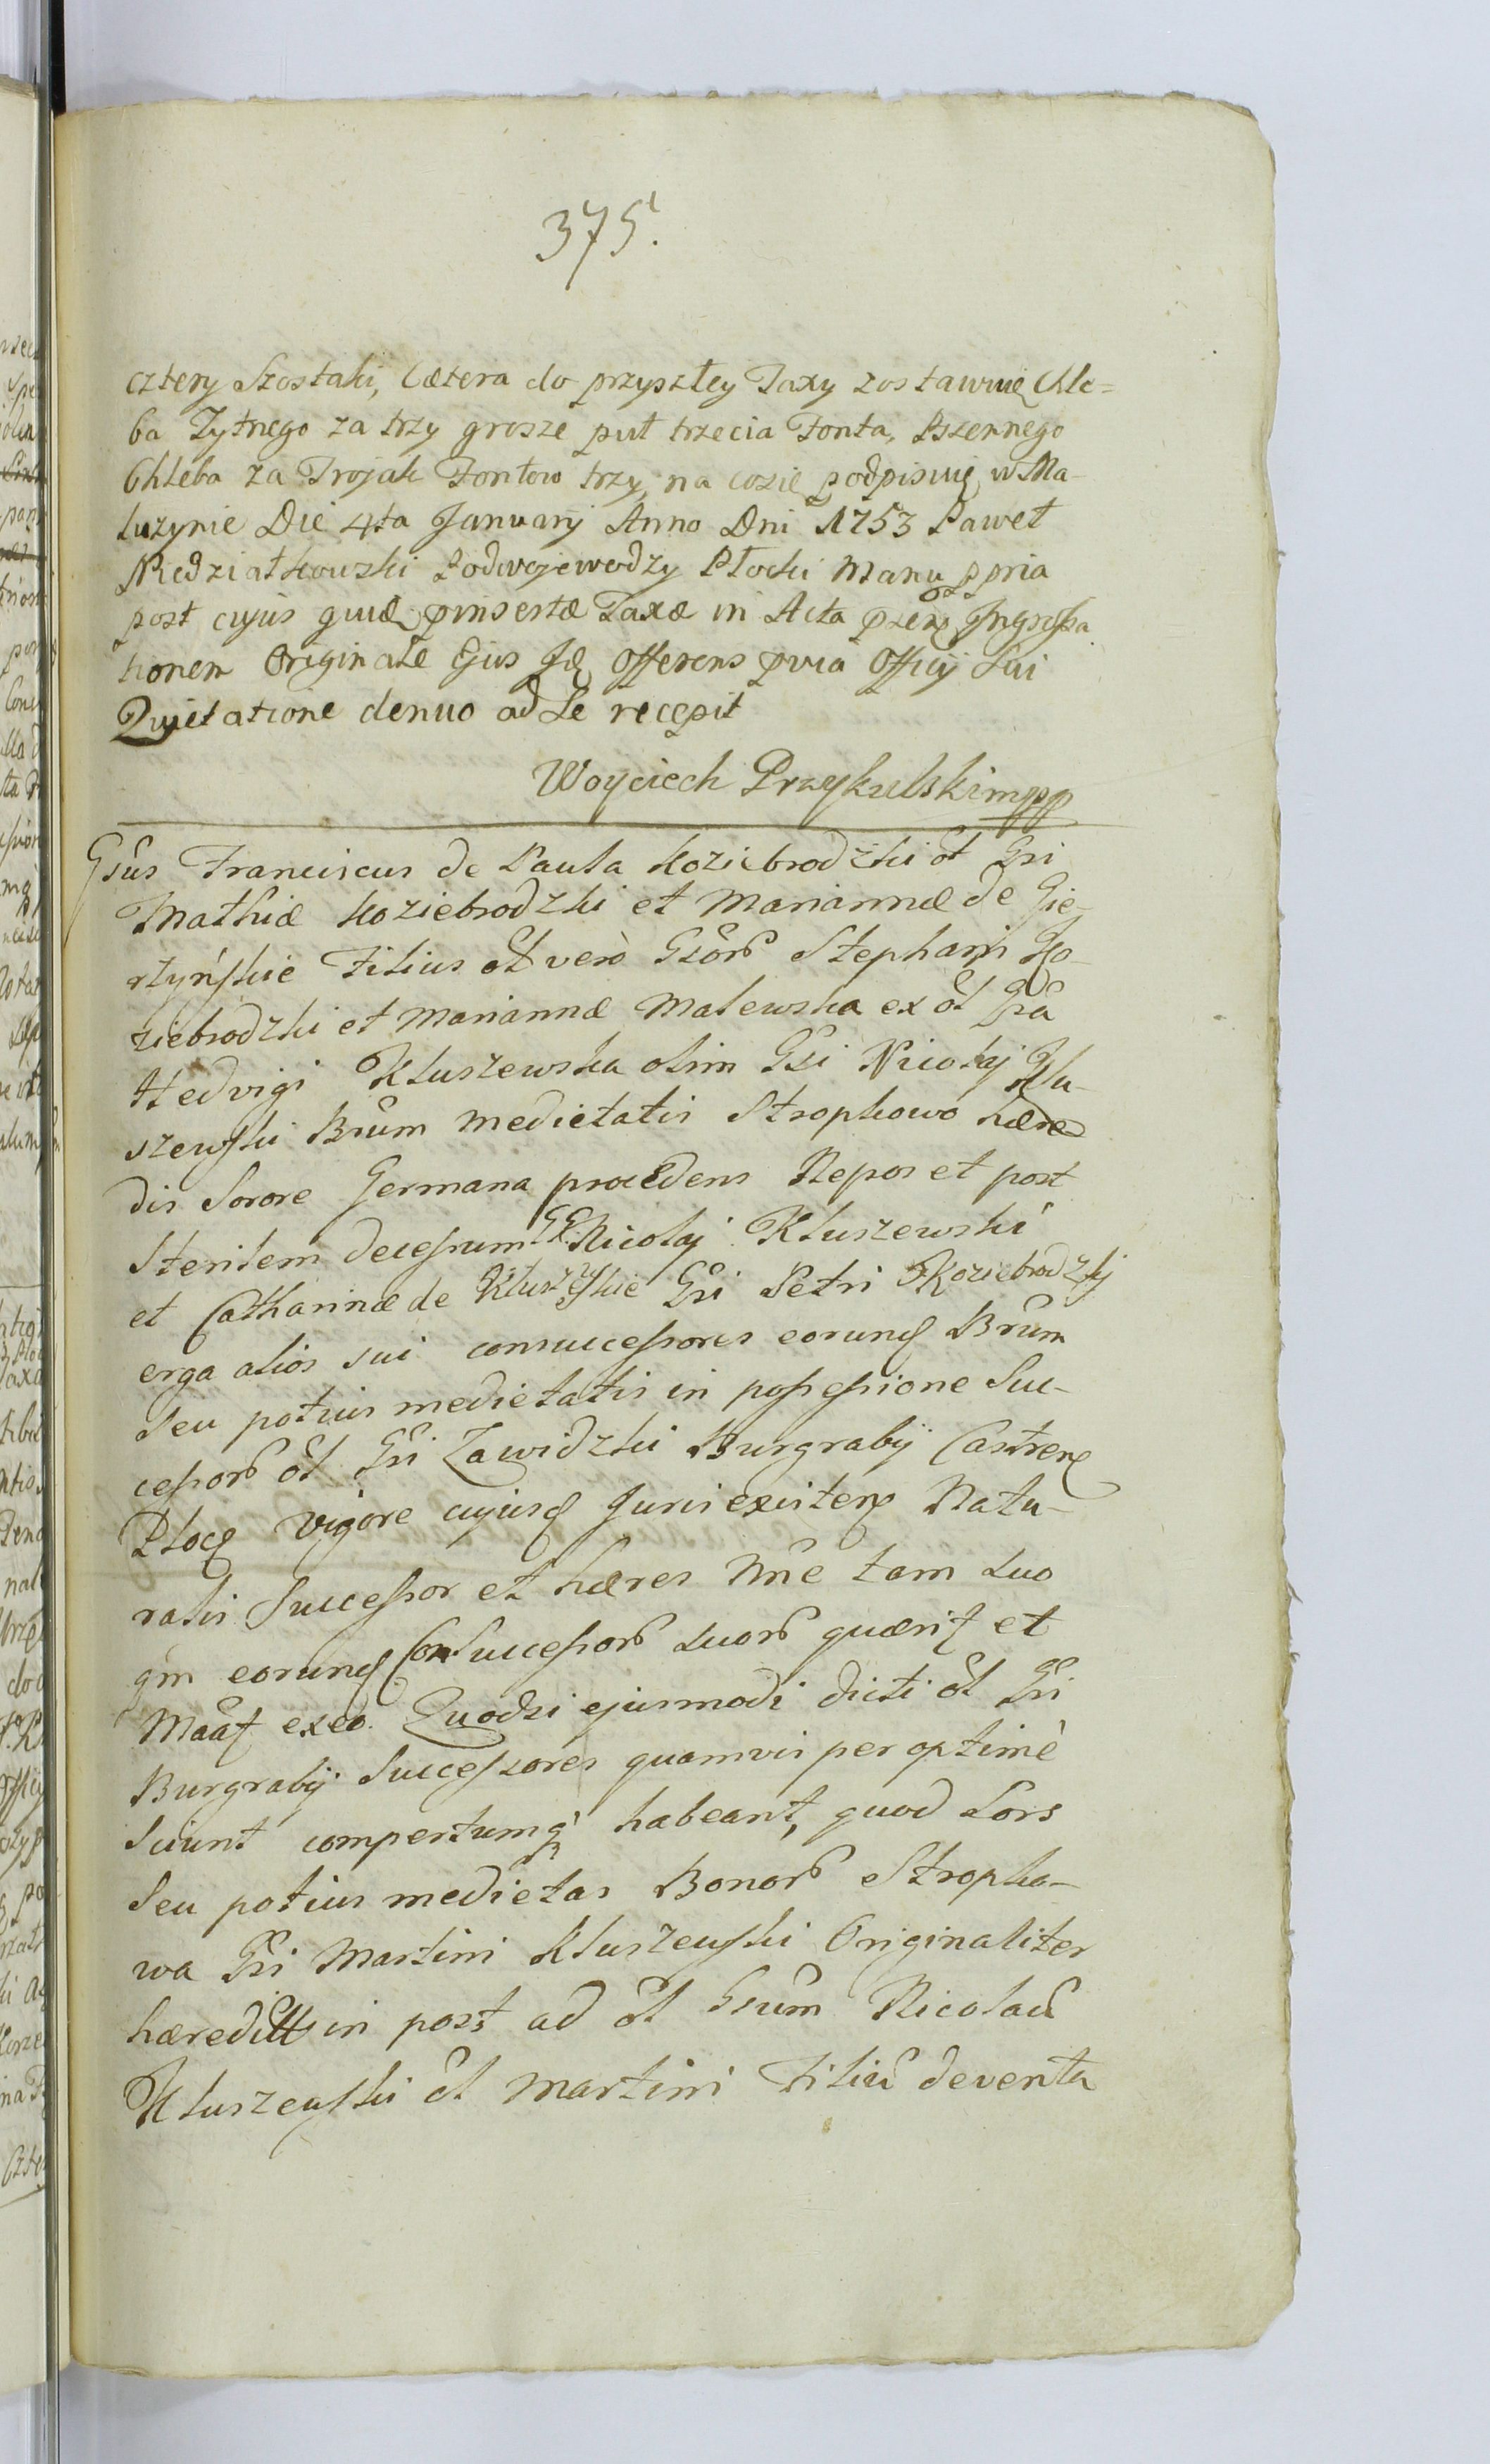 375.
cztery Szostaki, Cætera do przyszłey Taxy zostawuię Chle=
ba Zytnego za trzy grosze puł trzecia Fonta, Pszennego
Chleba za Trojak Fontow trzy, na cosię podpisuię w Ma-
luzynie Die 4ta Januarij Anno Dni 1753 Paweł
Niedziałkowski Podwojewodzy Płocki Manu ppria
post cujus quidę pinsertæ Taxæ in Acta pnen Ingrossa
tionem Originale Ejus Id Offerens pvia Officij Sui
Quietatione denuo ad Se recepit
Woyciech Przykulski mpp
Gsus Franciscus de Paula Koziebrodzki ol Gsi
Mathiæ Koziebrodzki et Mariannæ de Gie-
rtyńskie Filius ol verò Gsor Stephani Ko-
ziebrodzki et Mariannæ Malewska ex ol Gsa
Hedvigi Kluszewska olim Gsi Nicolaj Klu-
szewski Brum medietatis Strophowo hære
dis Sorore Germana procedens Nepos et post
Sterilem decessum GG. Nicolaj Kluszewski
et Catharinæ de Kluszewskie Gsi Petri Koziebrodzkij
erga alios sui consuccessores eorund Brum
Seu potius medietatis in possessione Suc-
cessor ol Gsi Zawidzki Burgrabij Castren
Ploc vigore cujusd Juris existen Natu-
ralis Successor et hæres Nne tam suo
qm eorund ConSuccessor suor quærit et
Maat exeo. Quodsi ejusmodi dicti ol Gsi
Burgrabij Successores quamvis per optimè
Sciunt compertumq habeant, quod Sors
Seu potius medietas Bonor Stropho-
wa Gsi Martini Kluszewski Originaliter
hæreditt in post ad ol Gsum Nicolau
Kluszewski ol Martini Filiu deventa